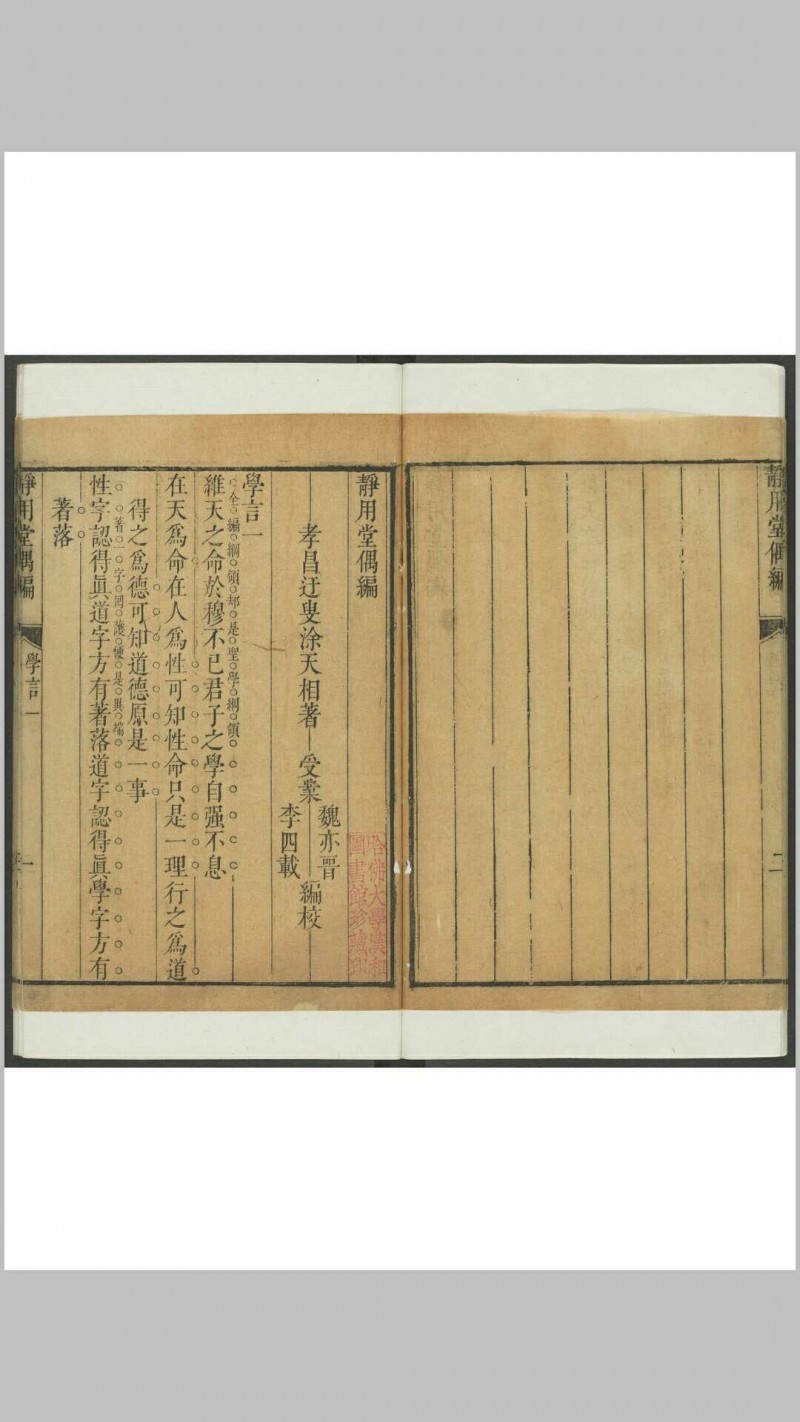 靜用堂偶編
二
靜用堂偶編
哈佛大學漢和
圖書館珍藏印
孝昌迂叟涂天相著 受業
魏亦晉
李四載
編校
學言一
全編綱領却是聖學綱領
維天之命於穆不已君子之學自强不息
在天爲命在人爲性可知性命只是一理行之爲道
得之爲德可知道德原是一事
著一字罔護便是異端
性字認得眞道字方有著落道字認得眞學字方有
著落
靜用堂偶編
學言一
一